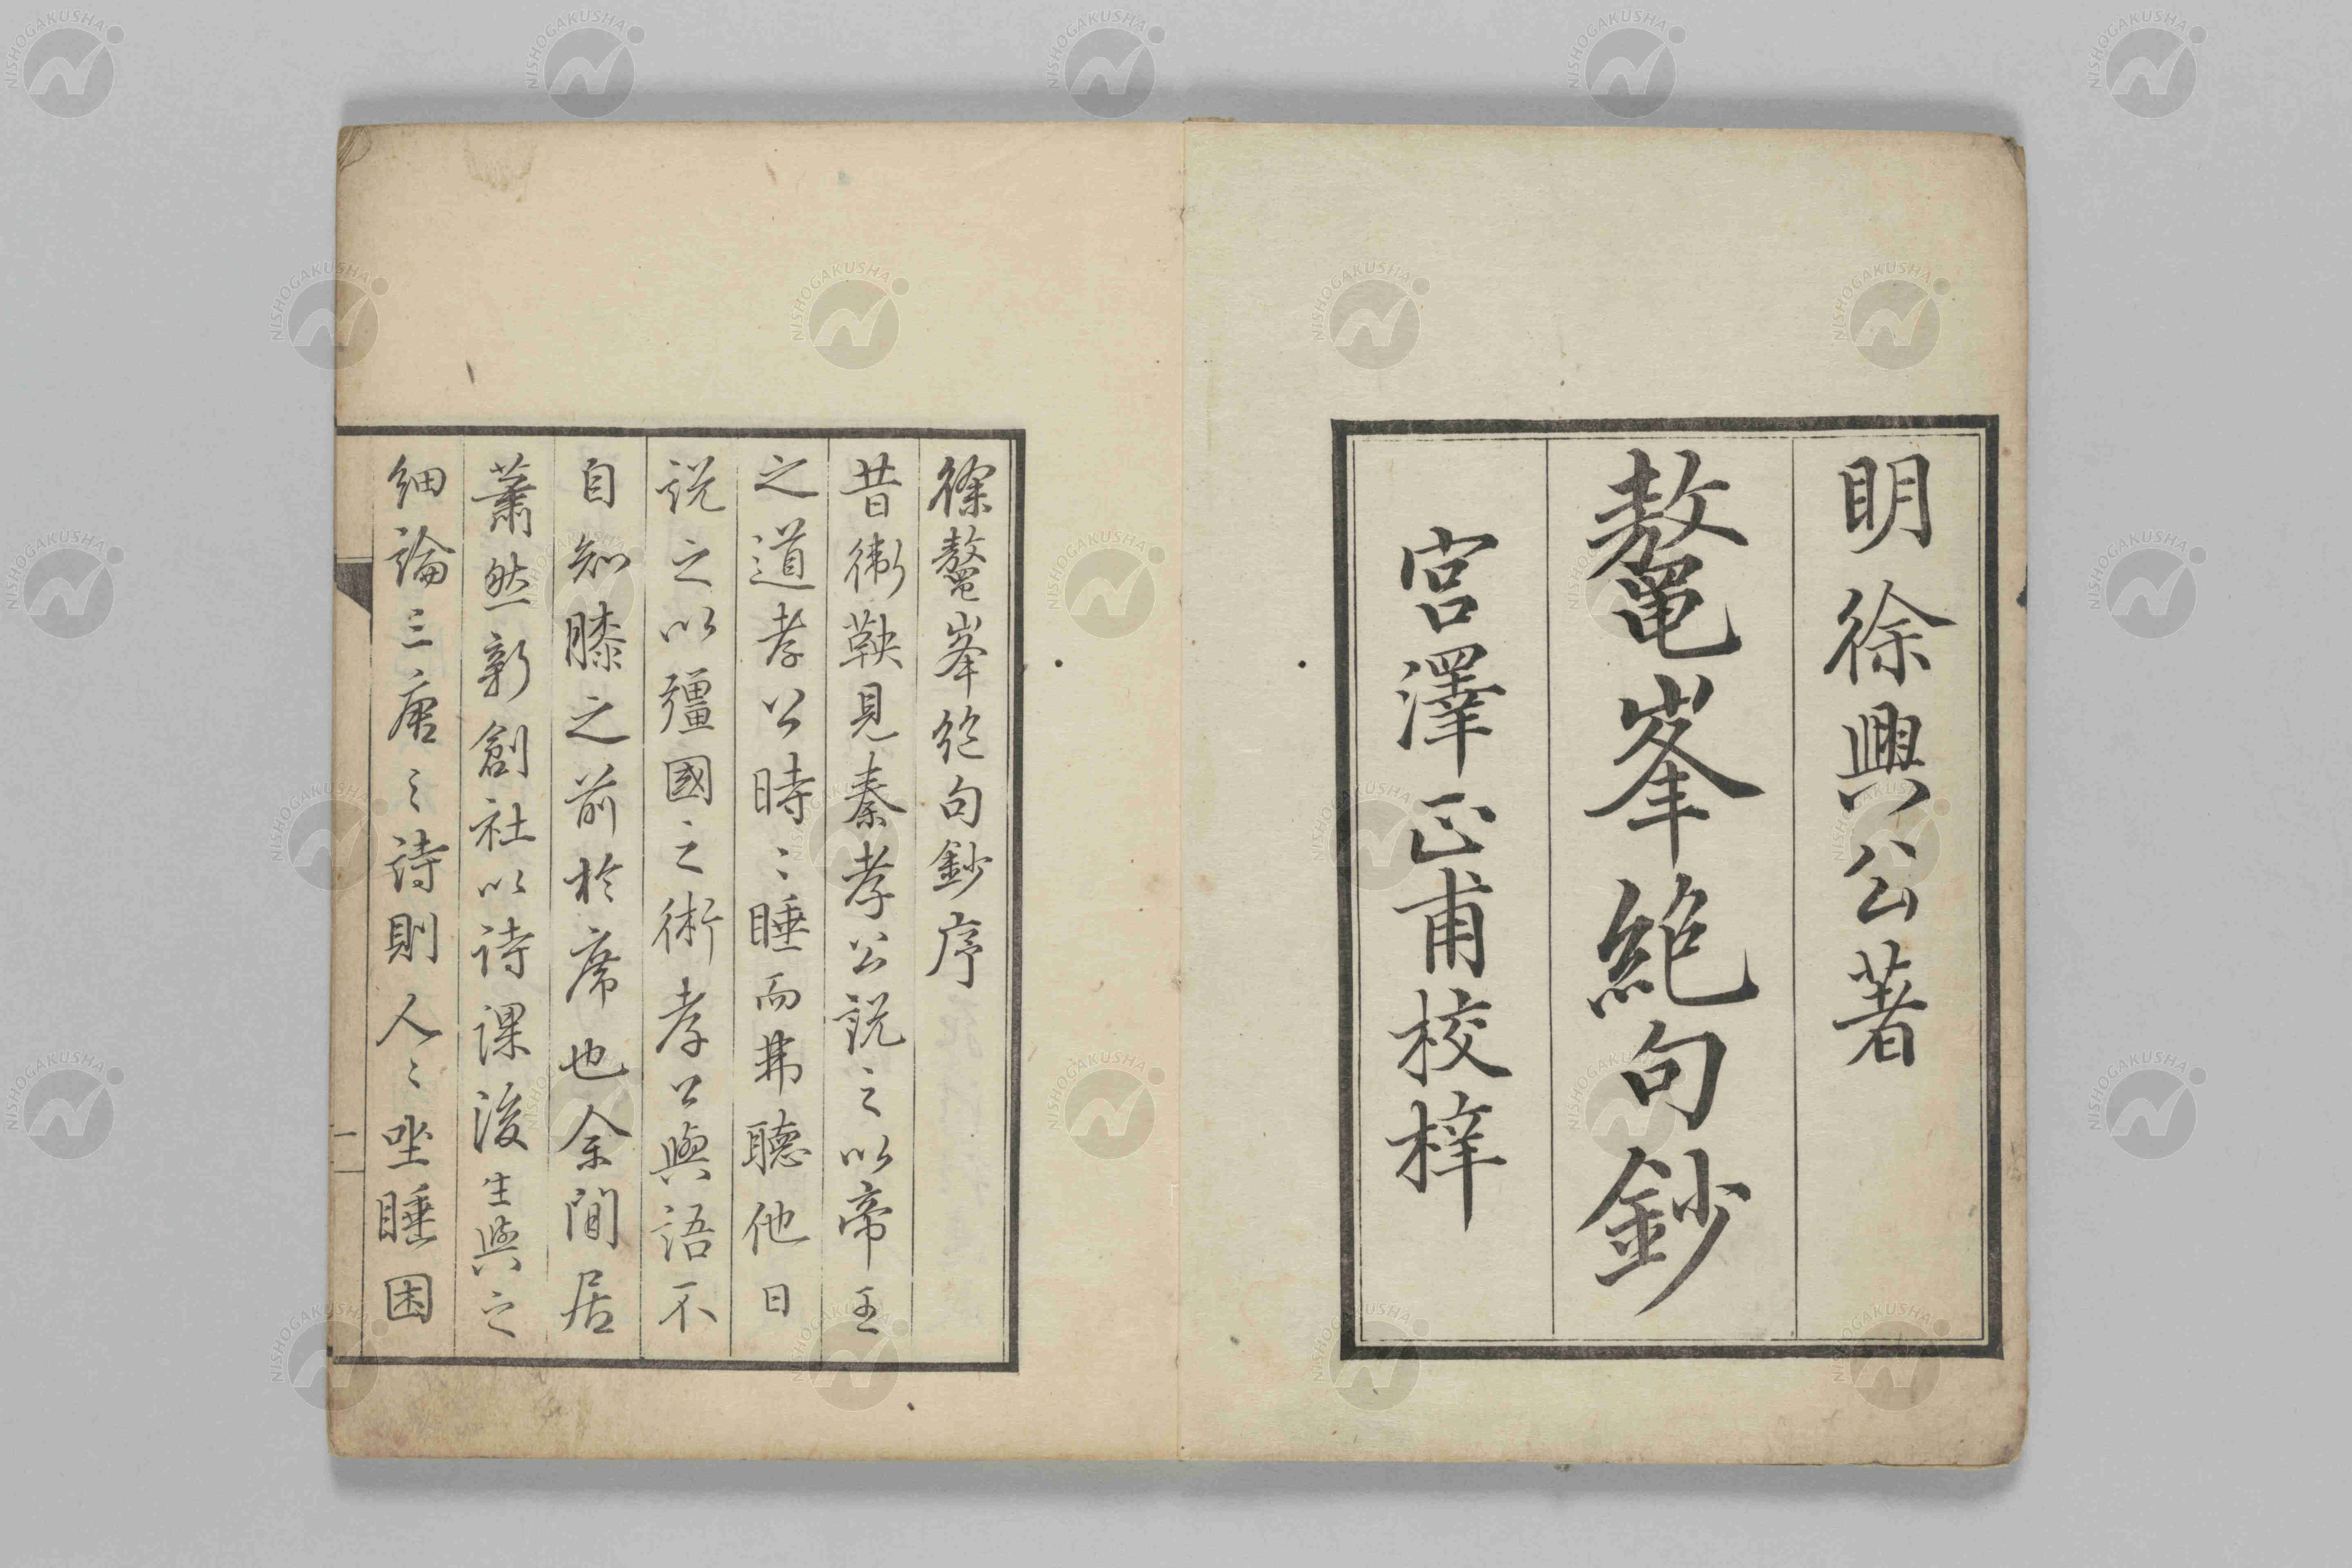 明徐興公著
鼇峯絶句鈔
宮澤正甫校梓
徐鼇峯絶句鈔序
昔衛鞅見秦孝公説之以帝王
之道孝公時〻睡而弗聽他日
説之以彊國之術孝公與語不
自知膝之前於席也余間居
蕭然新創社以詩課後生與之
細論三唐之詩則人〻坐睡困
二